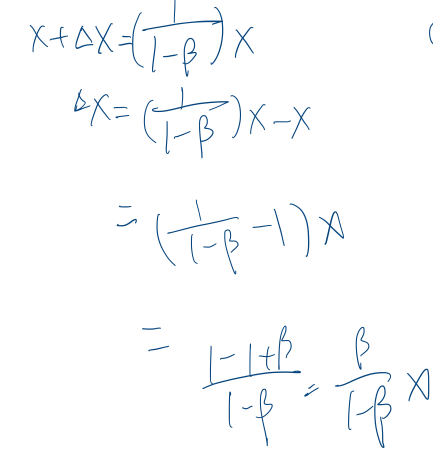 x + Δx = (1/(1-β)) x
Δx = (1/(1-β)) x - x
= (1/(1-β) - 1) x
= (1-1+β)/(1-β) = β/(1-β) x